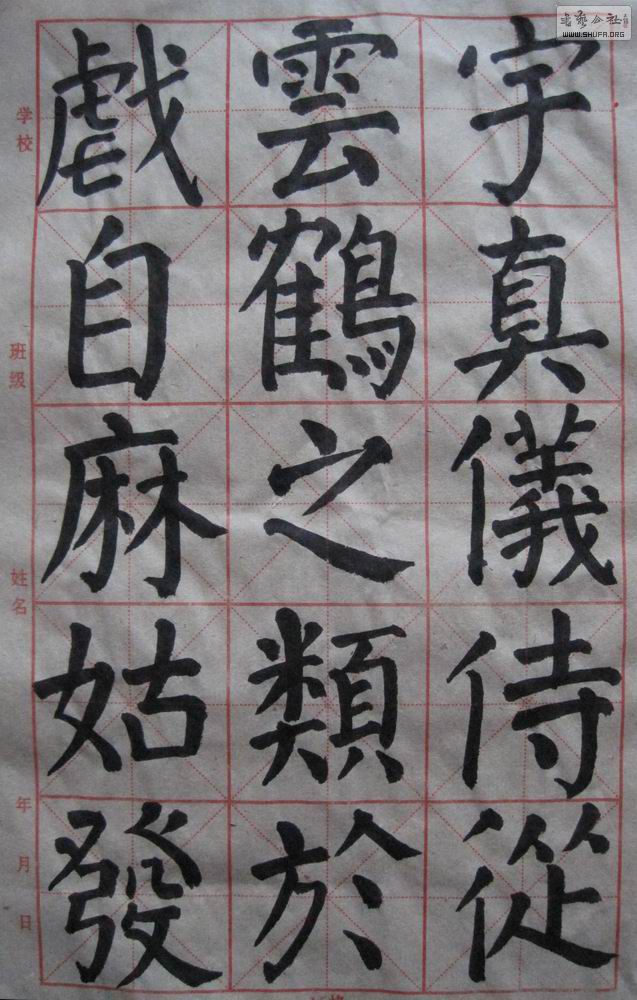 宇真儀侍從
雲鶴之類於
戲自麻姑發
学校
班级
姓名
年
月
日
WWW.SHUFA.ORG